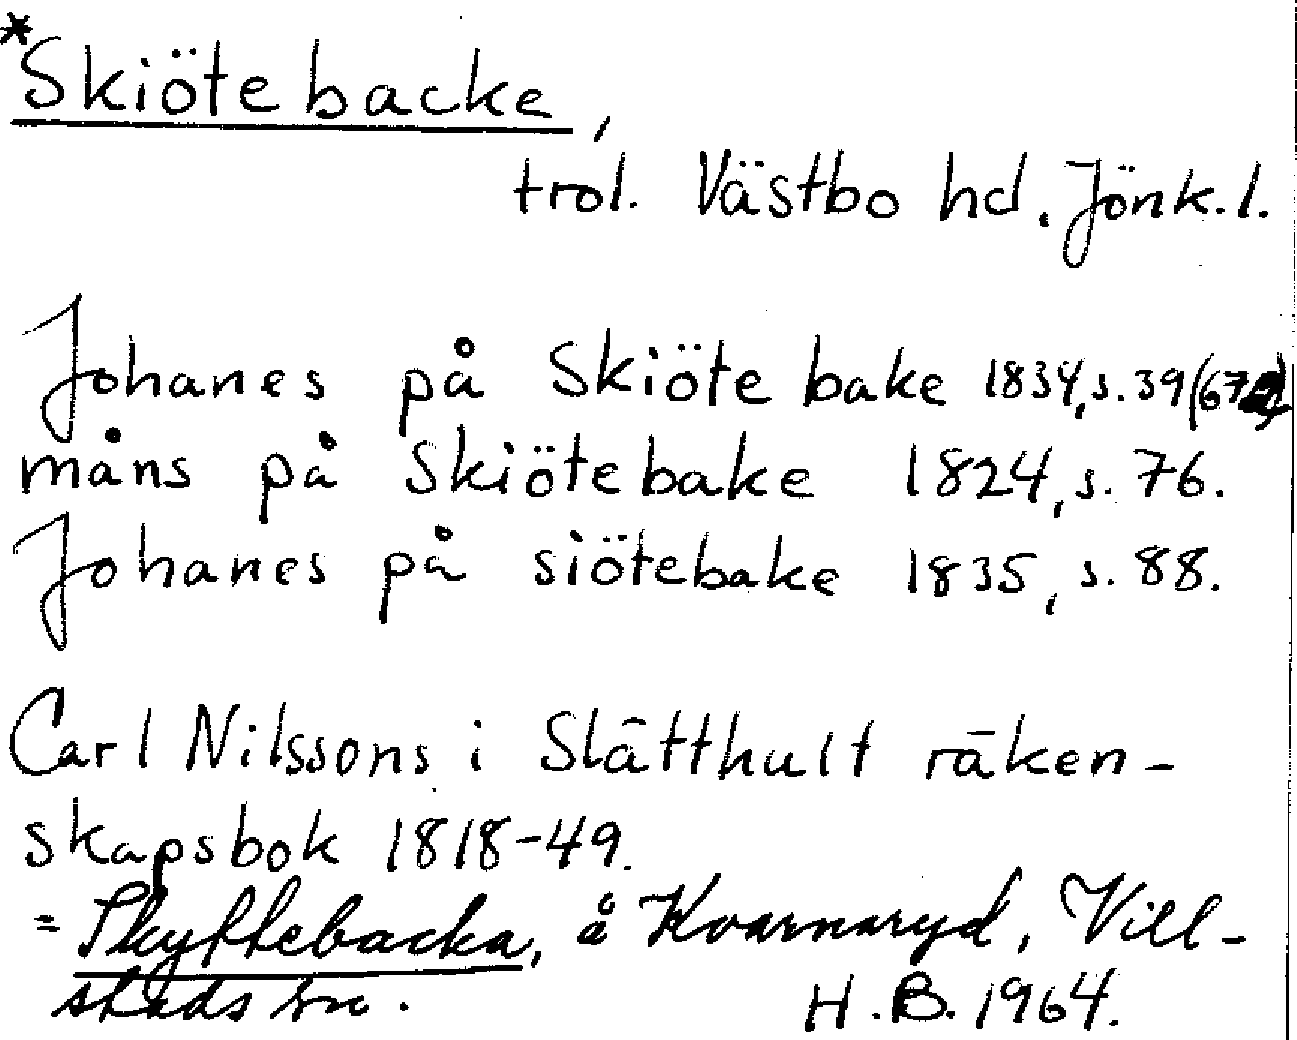 *Skiötebacke,
trol. Västbo hd. Jönk.l.
Johanes på Skiöte bake 1834, s. 39 (67
måns på Skiötebake 1824, s. 76.
Johanes på siötebake 1835, s. 88.
Carl Nilssons i Slätthult räken-
skapsbok 1818-49.
= Skyttebacka, å Kvarnaryd, Vill-
stads sn.
H.B. 1964.